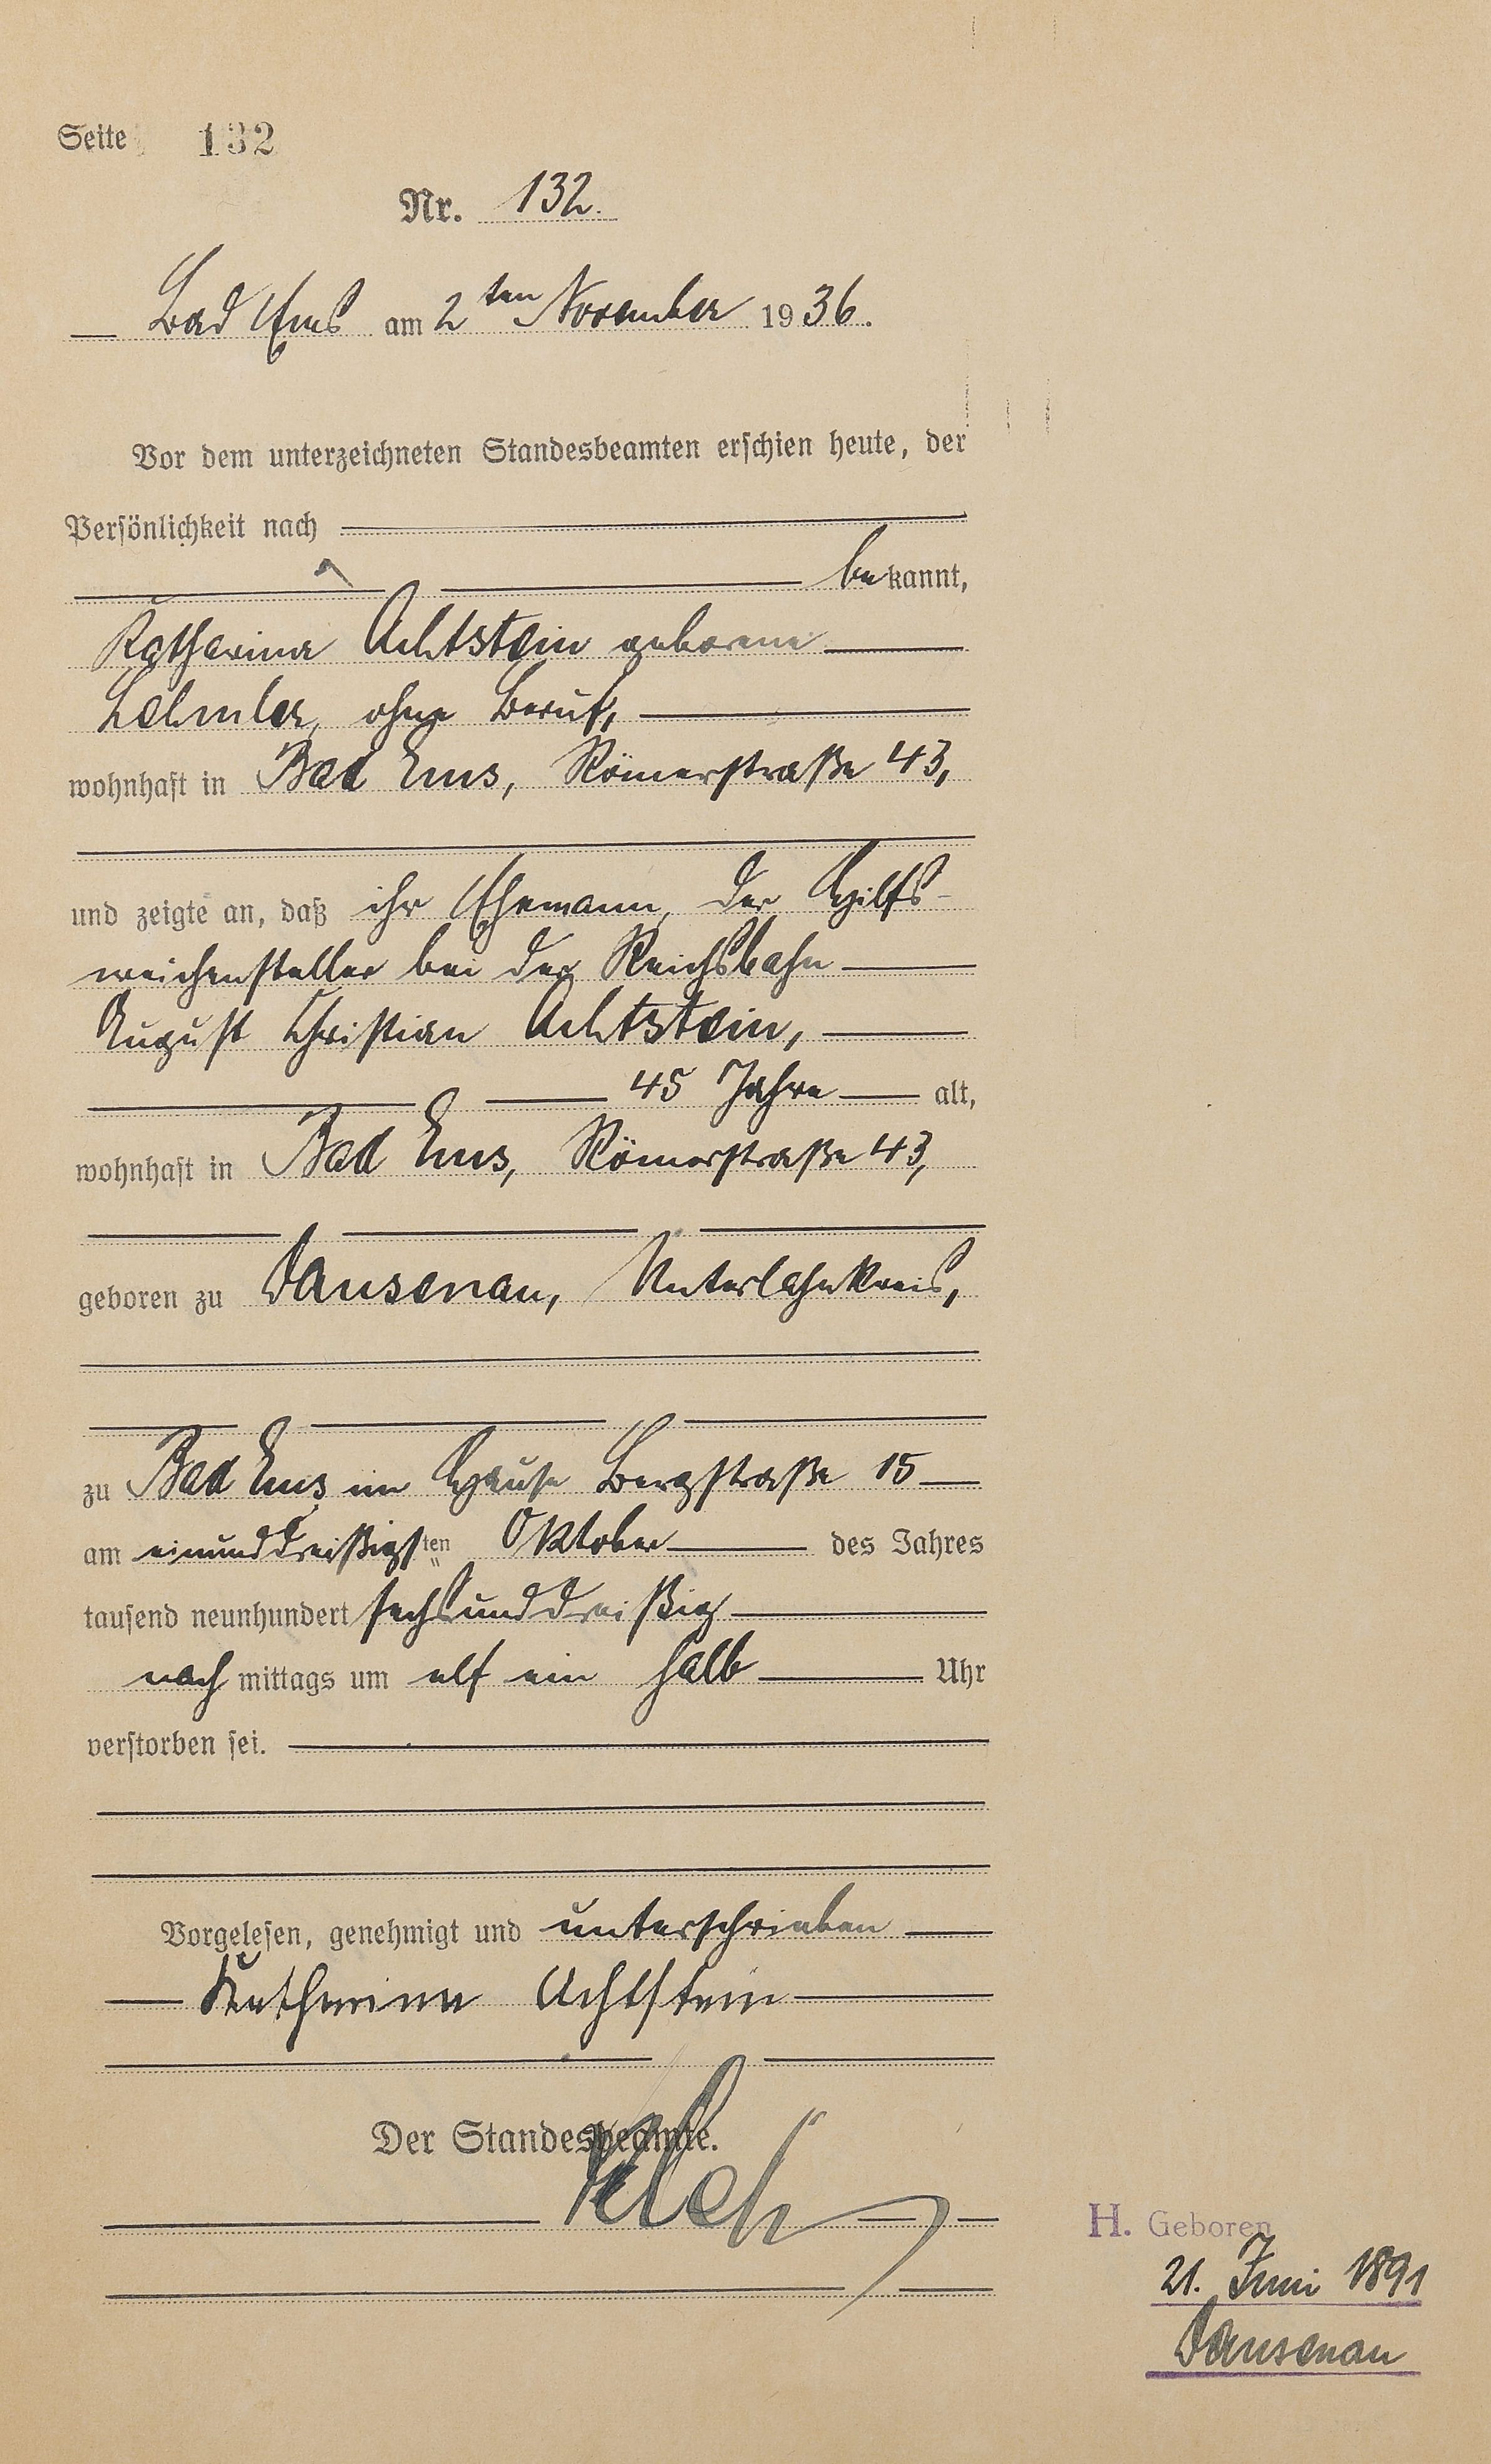 Seite 132
Nr. 132.
Bad Ems am 2ten November 1936.
Vor dem unterzeichneten Standesbeamten erschien heute, der
Persönlichkeit nach
bekannt,
Katharina Achtstein geborene
Lehmler, ohne Beruf,
wohnhaft in Bad Ems, Römerstraße 43,
und zeigte an, daß ihr Ehemann, der Hilfs-
weichensteller bei der Reichsbahn
August Christian Achtstein,
45 Jahre alt,
wohnhaft in Bad Ems, Römerstraße 43,
geboren zu Dausenau, Unterlahnkreis,
zu Bad Ems im Hause Bergstraße 15
am einunddreißigsten Oktober des Jahres
tausend neunhundert sechsunddreißig
nachmittags um elf ein halb Uhr
verstorben sei.
Vorgelesen, genehmigt und unterschrieben
Katharina Achtstein
Der Standesbeamte.
H. Geboren
21. Juni 1891
Dausenau